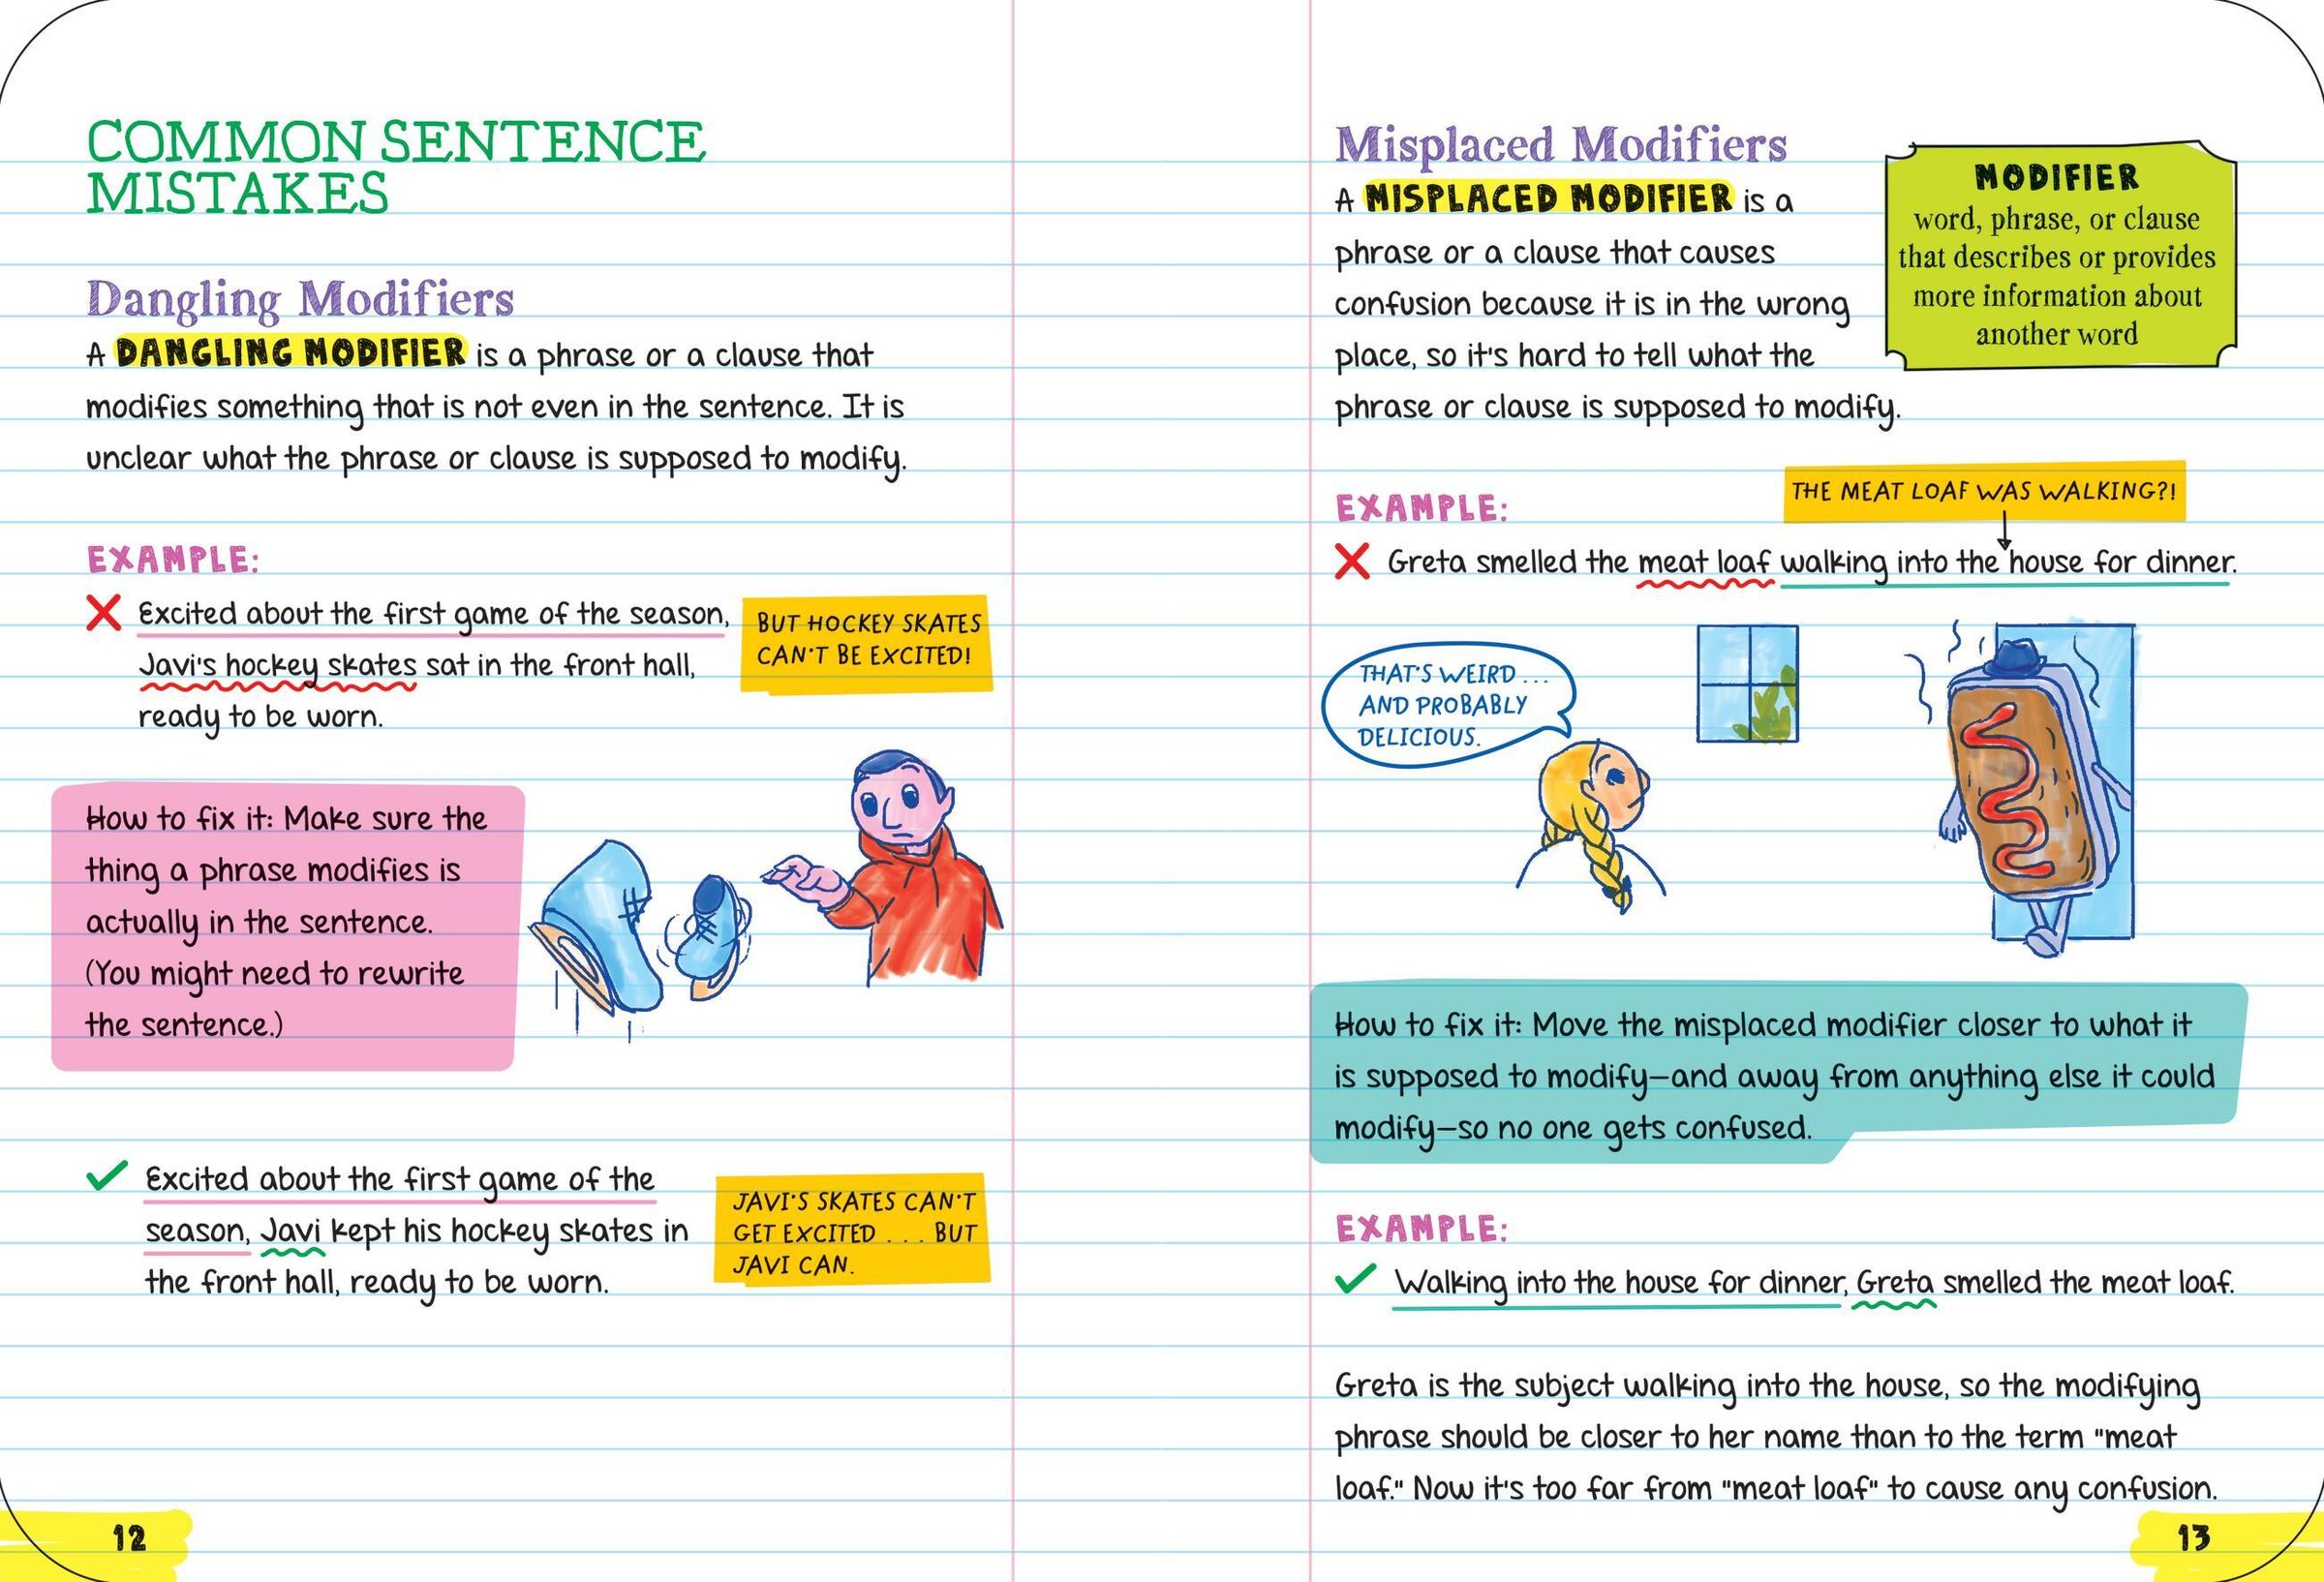 COMMON SENTENCE
MISTAKES
Dangling Modifiers
A DANGLING MODIFIER is a phrase or a clause that
modifies something that is not even in the sentence. It is
unclear what the phrase or clause is supposed to modify.
EXAMPLE:
Excited about the first game of the season,
Javi's hockey skates sat in the front hall,
ready to be worn.
BUT HOCKEY SKATES
CAN'T BE EXCITED!
How to fix it: Make sure the
thing a phrase modifies is
actually in the sentence.
(You might need to rewrite
the sentence.)
Excited about the first game of the
season, Javi kept his hockey skates in
the front hall, ready to be worn.
JAVI'S SKATES CAN'T
GET EXCITED . . . BUT
JAVI CAN.
12
Misplaced Modifiers
A MISPLACED MODIFIER is a
phrase or a clause that causes
confusion because it is in the wrong
place, so it's hard to tell what the
phrase or clause is supposed to modify.
MODIFIER
word, phrase, or clause
that describes or provides
more information about
another word
EXAMPLE:
THE MEAT LOAF WAS WALKING?!
Greta smelled the meat loaf walking into the house for dinner.
THAT'S WEIRD . . .
AND PROBABLY
DELICIOUS.
How to fix it: Move the misplaced modifier closer to what it
is supposed to modify—and away from anything else it could
modify—so no one gets confused.
EXAMPLE:
Walking into the house for dinner, Greta smelled the meat loaf.
Greta is the subject walking into the house, so the modifying
phrase should be closer to her name than to the term "meat
loaf." Now it's too far from "meat loaf" to cause any confusion.
13